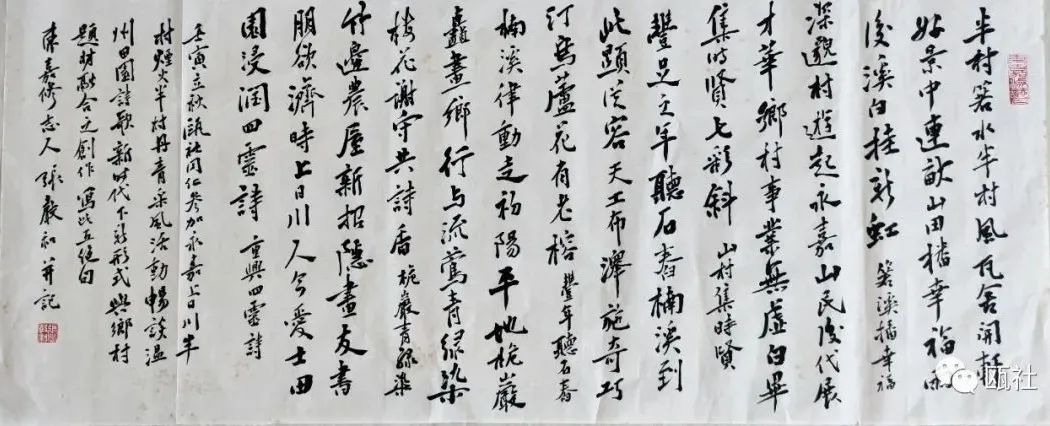 半村箬水半村風瓦舍開軒
好景中連畝山田播幸福雨
後溪白挂彩虹 箬溪播幸福
深邃村遊起永嘉山民後代展
才華鄉村事業無虛白畢
集時賢七彩斜 山村集時賢
豐足之年聽石舂楠溪到
此顯從容天工布澤施奇巧
汀寫蘆花有老榕 豐年聽石舂
楠溪律動走初陽平地桅巖
矗畫鄉行与流鶯青緑染
枝花謝守共詩香 桅巖青緑染
竹邊農屋新招隱畫友書
朋欲濟時上日川人今愛士田
園浸潤四靈詩 重興四靈詩
壬寅立秋甌社同仁參加永嘉上日川半
村煙火半村丹青采風活動暢談温
州田園詩歌新時代下新形式與鄉村
題材融合之創作寫此五絕句
東嘉修志人張嚴和并記
瓯社